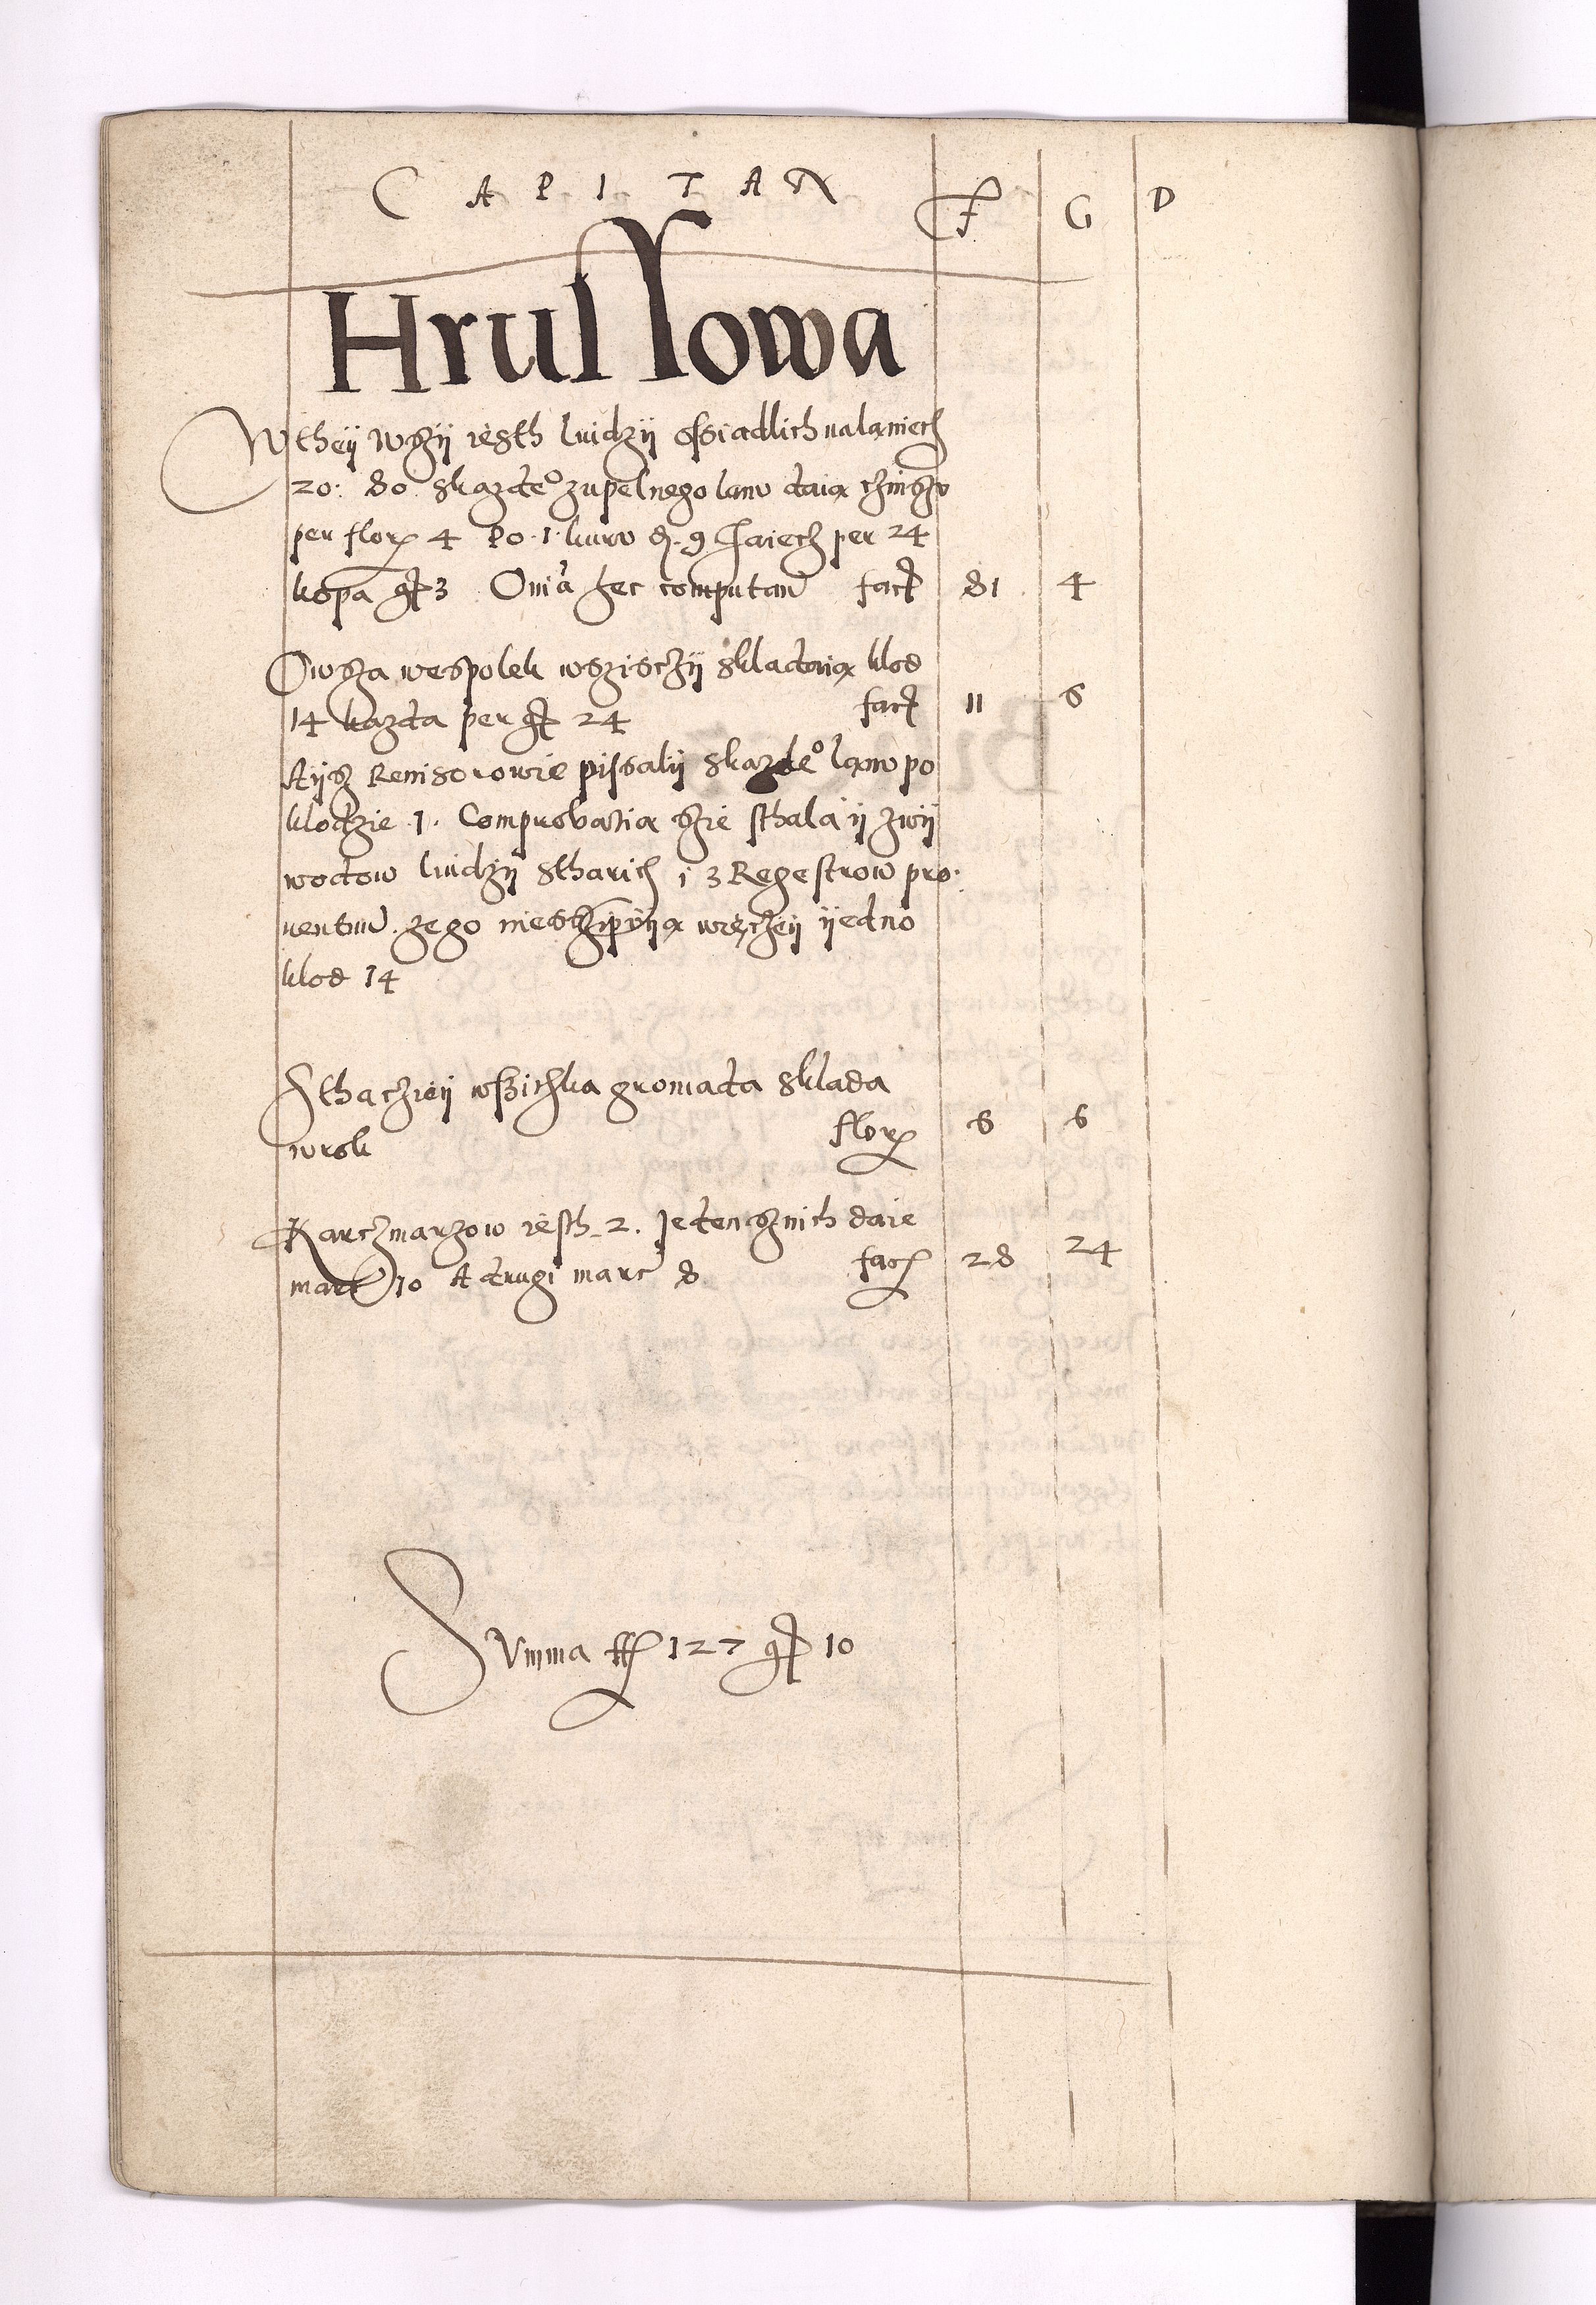 CAPITAN F G D
Hrussowa
W theÿ wszÿ iesth luidzÿ ossiadlich na laniech
20. Od skazde⁰ zupelnego lanu daia czinszu
per flor 4 Po 1 kuru d. 9 Jaiech per 24
kopa gr 3 Omĩa hec computand fact 81 4
Owsza wespolek wszisczÿ skladaia klod
14 kazda per gr 24 fact 11 6
Aÿsz Reuisorowie pissalÿ skazde⁰ lanu po
klodzie 1. Comprobatia szie sthala ÿ zwÿ
wodow luidzÿ stharich i z Regestrow pro
uentuu. zego nie wieczeÿ ÿedno
klod 14
Sthaczieÿ wssichka gromada sklada
wrok flor 6 6
Karczmarzow iesth 2. Jeden sznich daie
marc 10 A drugi marc 8 fact 28 24
Summa fl 127 gr 10